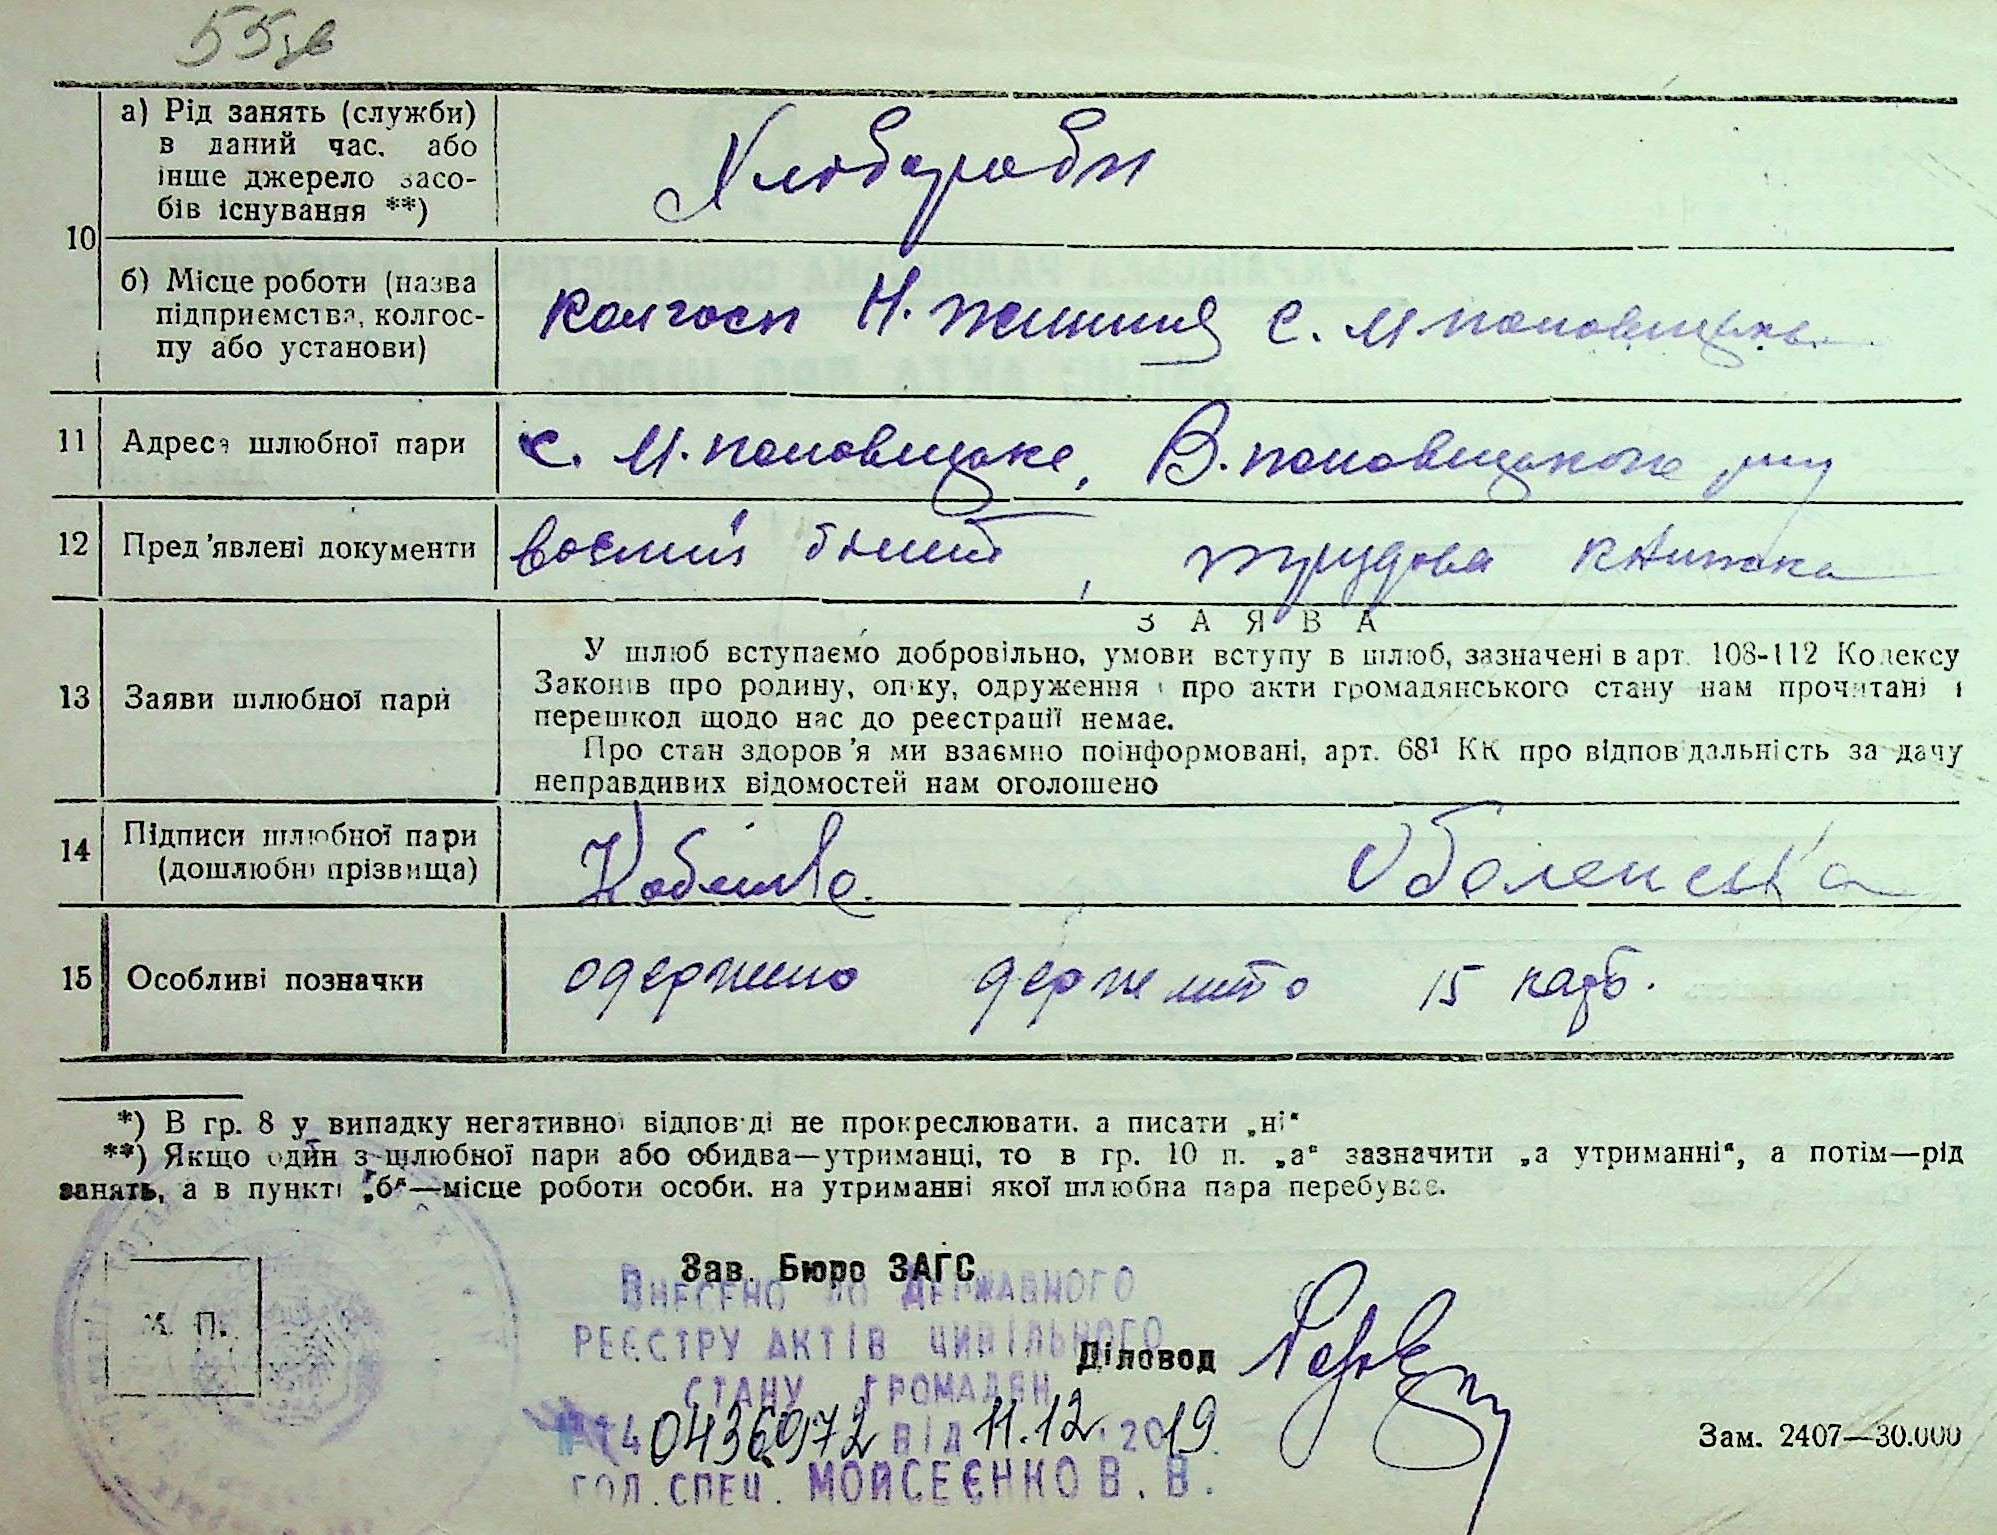 55зв
10
а) Рід занять (служби)
в даний час, або
інше джерело засо-
бів існування **)
Хлібороби
б) Місце роботи (назва
підприємства, колгос-
пу або установи)
колгосп Н. життя с. М поповицьке
11 Адреса шлюбної пари с. М. поповицьке, В. поповицького р-ну
12 Пред'явлені документи воєний білет, трудова книжка
13 Заяви шлюбної пари
ЗАЯВА
У шлюб вступаємо добровільно, умови вступу в шлюб, зазначені в арт. 108-112 Кодексу
Законів про родину, опіку, одруження і про акти громадянського стану нам прочитані і
перешкод щодо нас до реєстрації немає.
Про стан здоров'я ми взаємно поінформовані, арт. 68¹ КК про відповідальність за дачу
неправдивих відомостей нам оголошено
14 Підписи шлюбної пари
(дошлюбні прізвища)
Оболенська
15 Особливі позначки одержано держмито 15 карб.
*) В гр. 8 у випадку негативної відповіді не прокреслювати, а писати „ні“
**) Якщо один з шлюбної пари або обидва—утриманці, то в гр. 10 п. „а“ зазначити „а утриманні“, а потім—рід
занять, а в пункті „б“—місце роботи особи, на утриманні якої шлюбна пара перебуває.
М. П.
Зав. Бюро ЗАГС
ВНЕСЕНО ДО ДЕРЖАВНОГО
РЕЄСТРУ АКТІВ ЦИВІЛЬНОГО
Діловод
СТАНУ ГРОМАДЯН
0436972 ВІД 11.12.2019.
ГОЛ. СПЕЦ. МОЙСЕЄНКО В. В.
Зам. 2407—30.000